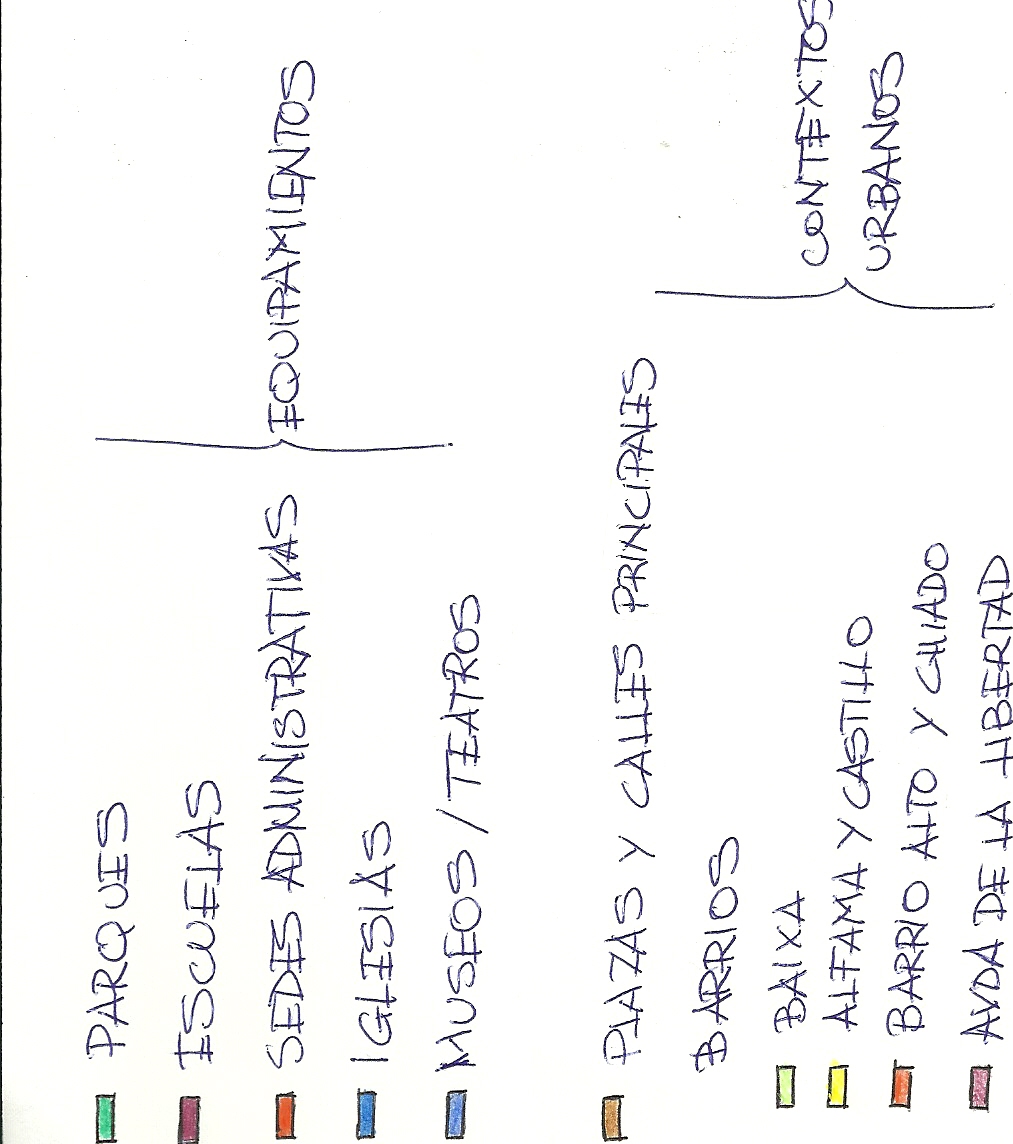 PARQUES
ESCUELAS
SEDES ADMINISTRATIVAS
IGLESIAS
MUSEOS / TEATROS
EQUIPAMIENTOS
PLAZAS Y CALLES PRINCIPALES
BARRIOS
BAIXA
ALFAMA Y CASTILLO
BARRIO ALTO Y CHIADO
AVDA DE LA LIBERTAD
CONTEXTOS
URBANOS